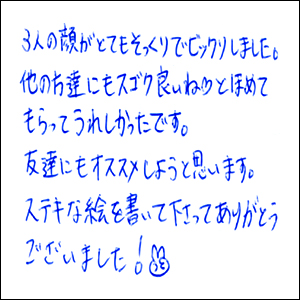 3人の顔がとてもそっくりでビックリしました。
他のお達にもスゴク良いね♡とほめて
もらってうれしかったです。
友達にもオススメしようと思います。
ステキな絵を書いて下さってありがとう
ございました!